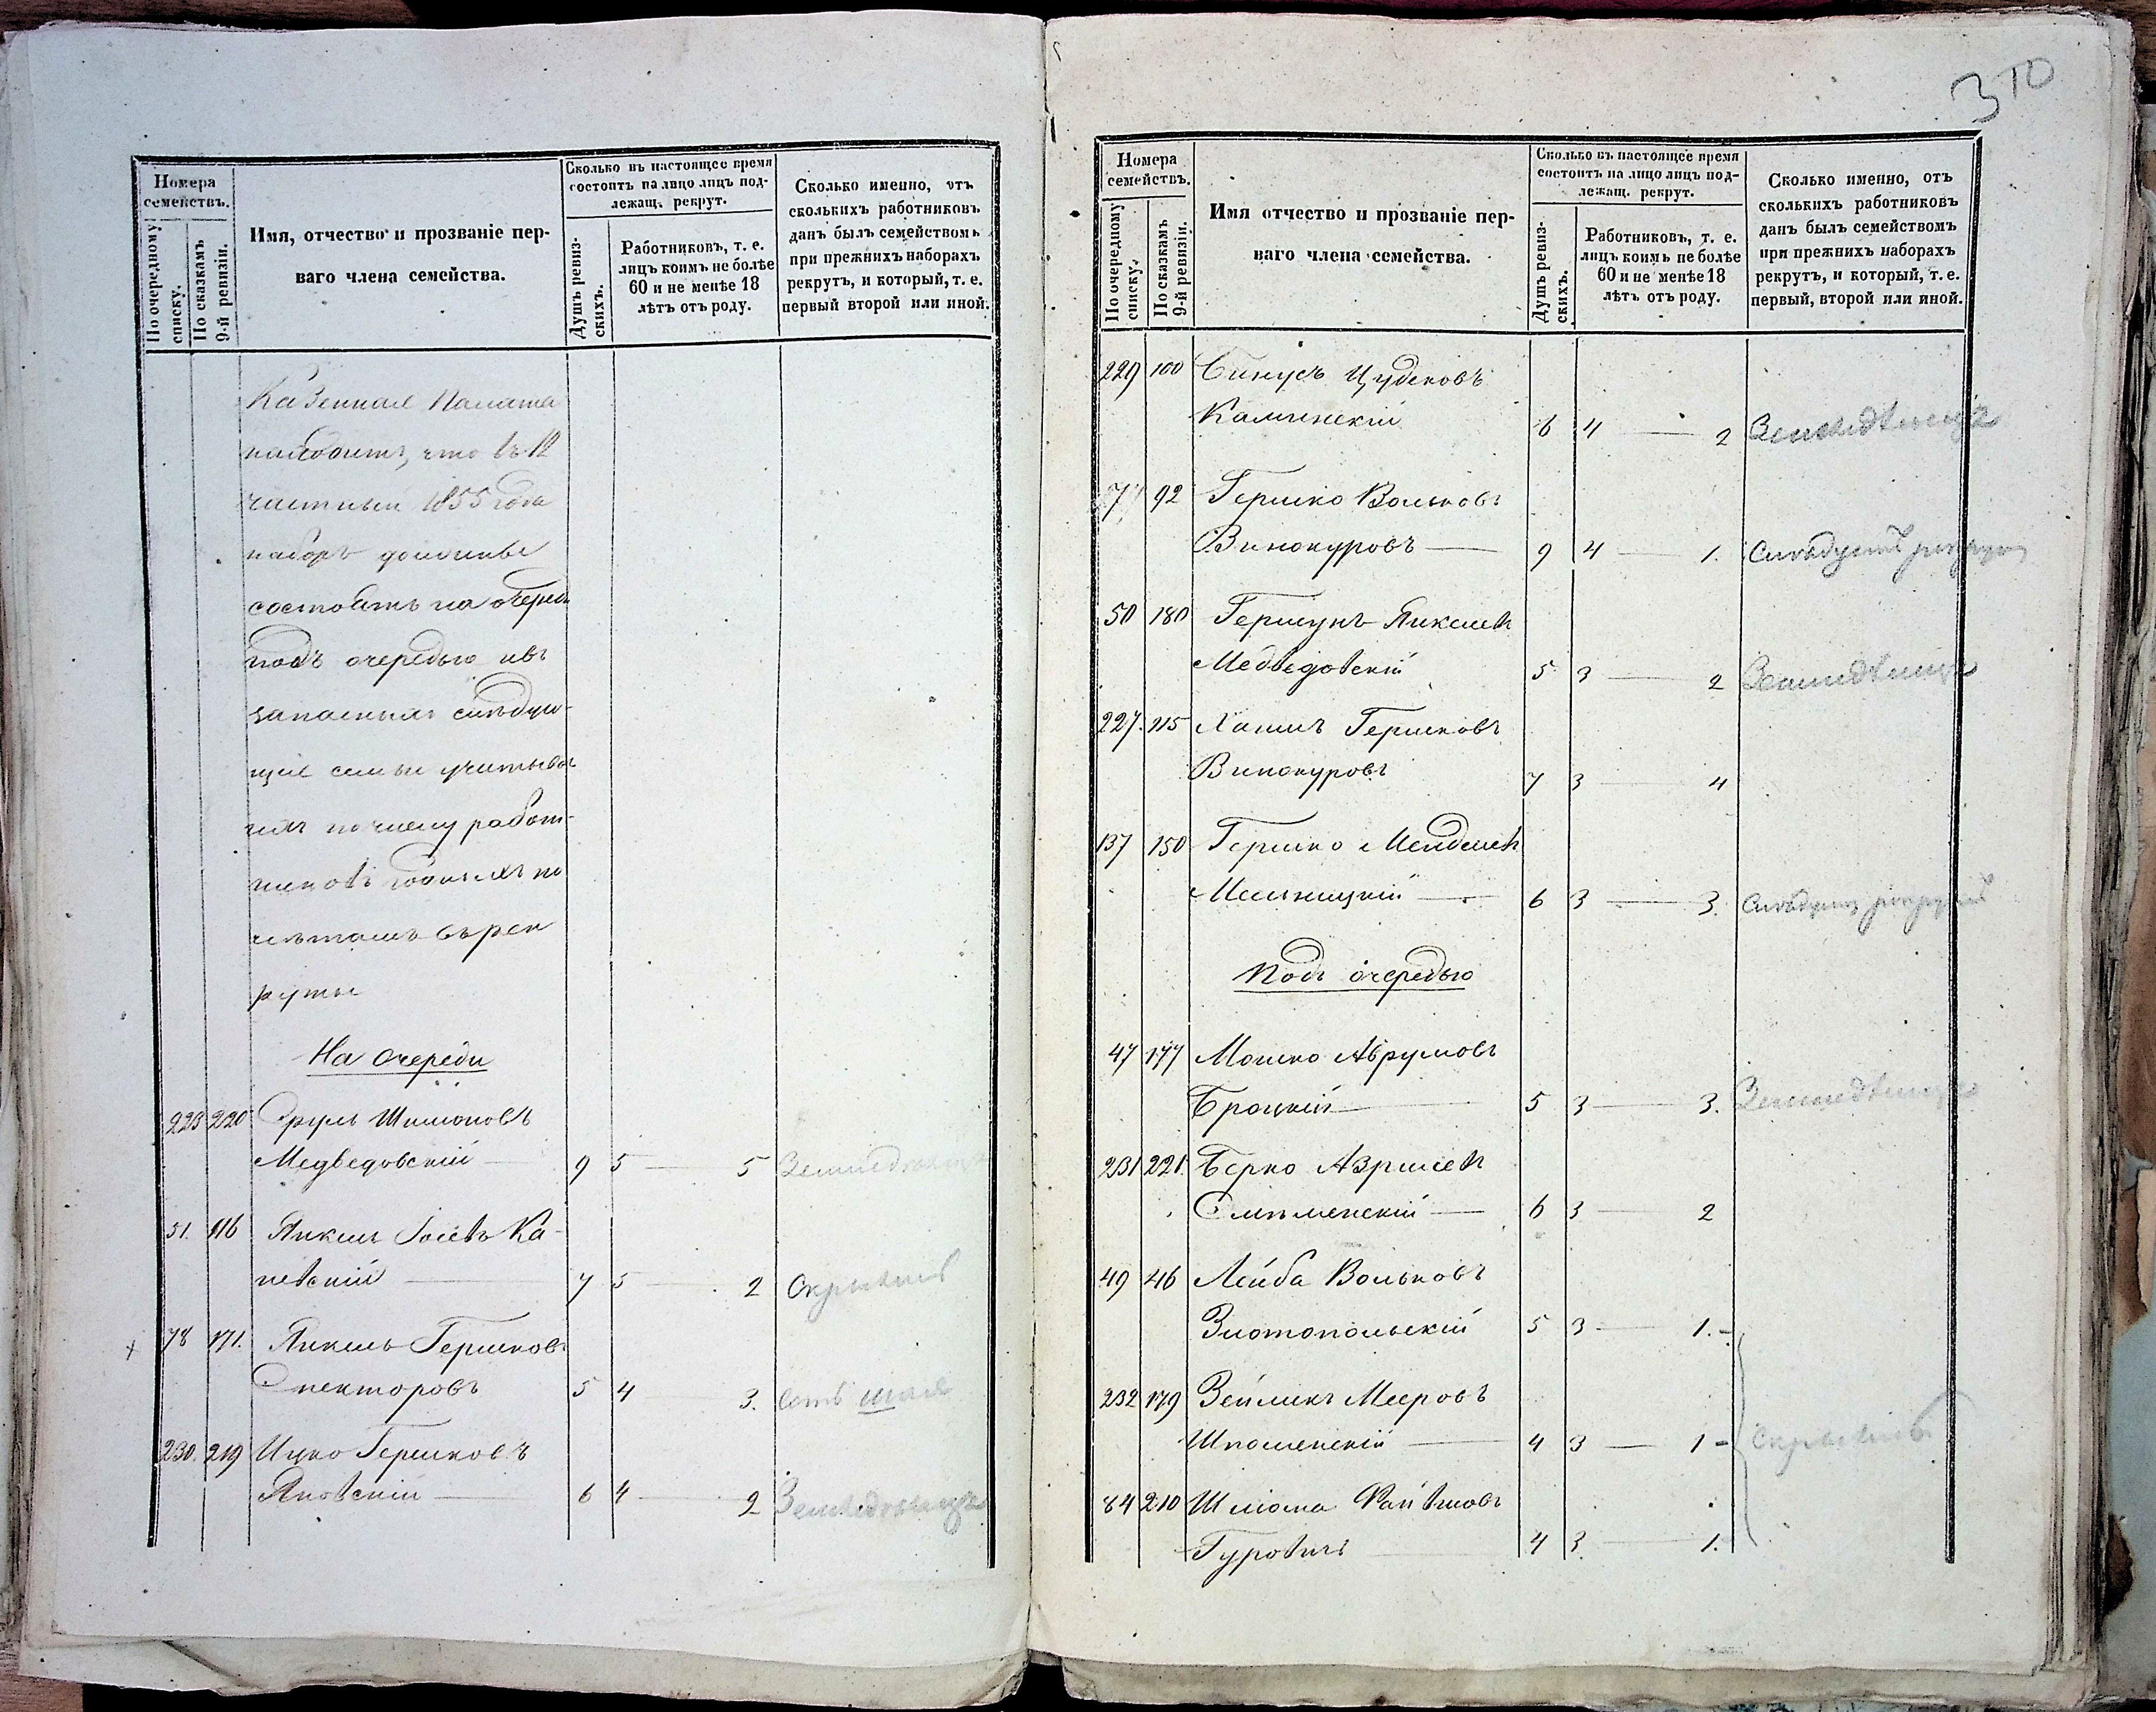 Номера
семействъ.
По очередному
списку.
По сказкамъ
9-й ревизіи.
Имя, отчество и прозваніе пер-
ваго члена семейства.
Сколько въ настоящее время
состоитъ на лицо лицъ под-
лежащ. рекрут.
Душъ ревиз-
скихъ.
Работниковъ, т. е.
лицъ коимъ не болѣе
60 и не менѣе 18
лѣтъ отъ роду.
Сколько именно, отъ
сколькихъ работниковъ
данъ былъ семействомъ
при прежнихъ наборахъ
рекрутъ, и который, т. е.
первый второй или иной.
Казенная Палата
находитъ, что въ 12
частный 1855 года
наборъ должны
состоять на очереди
подъ очередью и въ
запасныхъ слѣдую-
щие семьи
по числу работ-
никовъ годныхъ по
лѣтамъ въ рек
руты
На очереди
229 220 Сруль Шимоновъ
Медведовскій 9 5 5
51. 116 Янкель Іосевъ Ка-
невскій 7 5 2 Скрылись
78 171. Янкель Гершковъ
Спекторовъ 5 4 3.
230. 219 Ицко Гершковъ
Яновскій 6 4 2 Земледѣлецъ
310
Номера
семействъ.
По очередному
списку.
По сказкамъ
9-й ревизіи.
Имя отчество и прозваніе пер-
ваго члена семейства.
Сколько въ настоящее время
состоитъ на лицо лицъ под-
лежащ. рекрут.
Душъ ревиз-
скихъ.
Работниковъ, т. е.
лицъ коимъ не болѣе
60 и не менѣе 18
лѣтъ отъ роду.
Сколько именно, отъ
сколькихъ работниковъ
данъ былъ семействомъ
при прежнихъ наборахъ
рекрутъ, и который, т. е.
первый, второй или иной.
229 100
Каминскій 6 4 2 Земледѣлецъ
77 92 Гершко Вольковъ
Винокуровъ 9 4 1. Слѣдуетъ
50 180 Гершунъ Янкелев
Медведовскій 5 3 2 Земледѣлецъ
227. 115 Хаимъ Гершковъ
Винокуровъ 7 3 4
137 150 Гершко Менделев
Мельницкій 6 3 3.
Подъ очередью
47 177 Мошко Аврумовъ
Броцкій 5 3 3. Земледѣлецъ
231 221. Берко Азрилев
Смѣлненскій 6 3 2
49 46 Лейба Вольковъ
Златопольскій 5 3 1.
232 179 Зейликъ Мееровъ
Шполенскій 4 3 1 Скрылись
84 210 Шліома
Гуровичъ 4 3. 1.